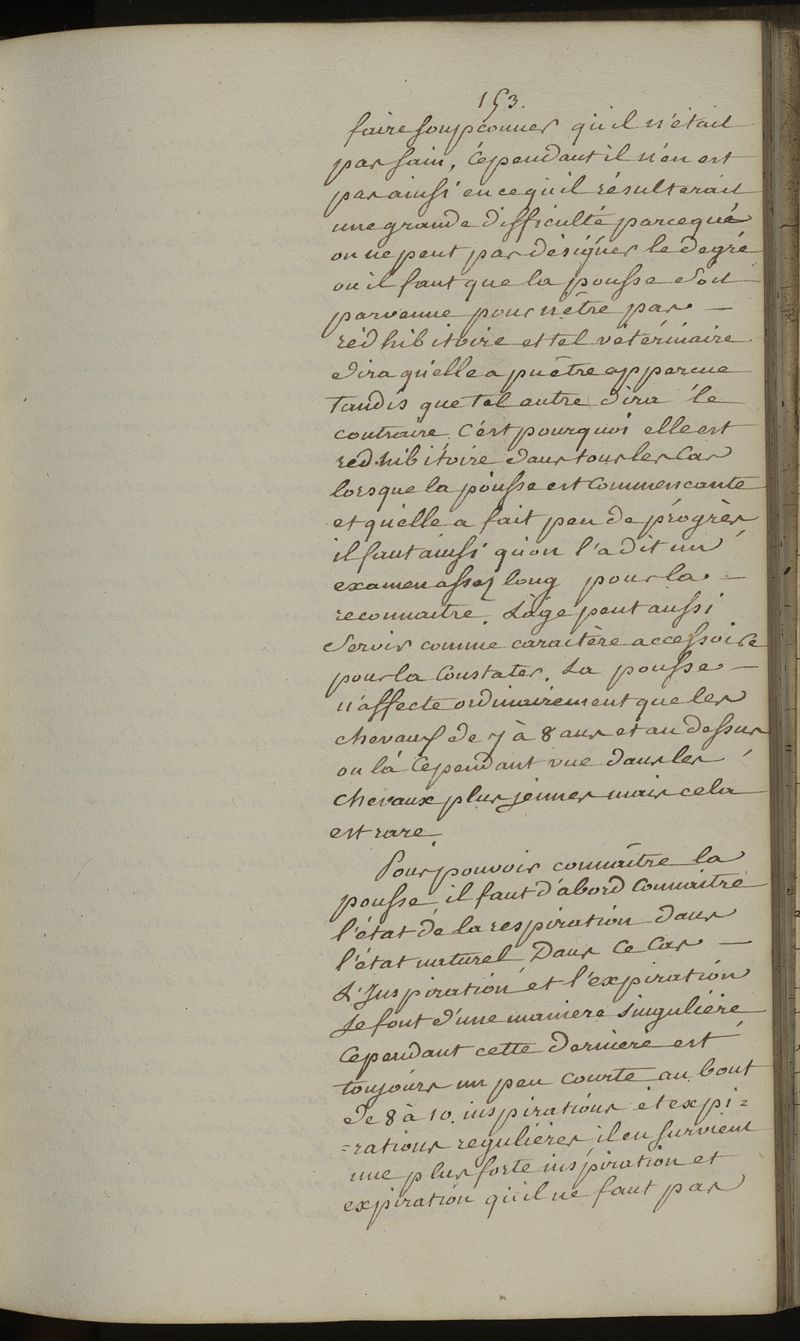 153.
faire soupconner qu'il n'était
pas sain, cépendant il n'en est
pas ainsi en ce qu'il résulterait
une grande difficulté parceque
on ne peut pas désigner le degré
ou il faut que la pousse soit
parvenue pour n'être pas —
rédhibitoire et tel vétérinaire
dira qu'elle a pu être apparcue
tandis que tel autre dira le
contraire. C'est pourquoi elle est
redhibitoire dans tous les Cas
lorsque la pousse est Commencante
et qu'elle a fait peu de progrès
il faut ainsi qu'on l'a dit un
examen assez long pour la —
reconnaitre. L'age peut aussi
servir comme caractère accessoire
pour la Constater. La pousse —
n'affecte ordinairement que les
chevaux de 7 à 8 ans et au dessus
on l'a Cependant vue dans les
chevaux plus jeunes mais cela
est rare.
Pour pouvoir connaître la
pousse il faut d'abord Connaitre
l'état de la respiration dans
l'état naturel Dans Ce Cas —
L'Inspiration et l'expiration
se font d'une maniere singulière
Cependant cette derniere est
toujours un peu courte au bout
de 8 à 10. inspirations et expi=
=rations regulières il en survient
une plus forte inspiration et
expiration qu'il ne faut pas